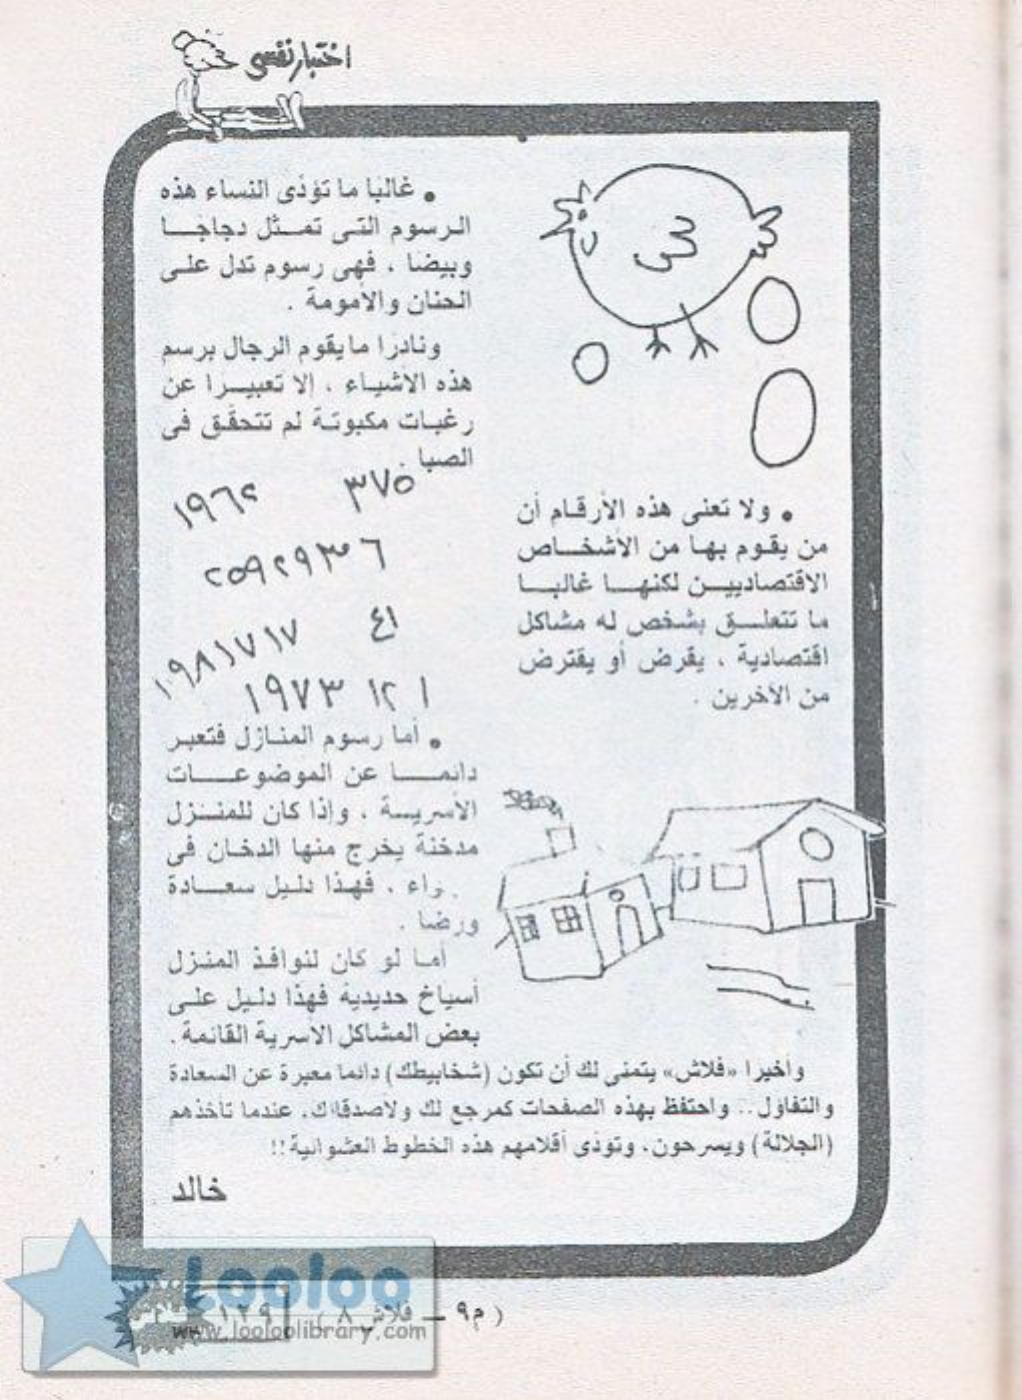 اختبار نفسى
• غالبا ما تؤذى النساء هذه
الرسوم التى تمثل دجاجا
وبيضا ، فهى رسوم تدل على
الحنان والأمومة .
ونادرا ما يقوم الرجال برسم
هذه الاشياء ، إلا تعبيرا عن
رغبات مكبوتة لم تتحقق فى
الصبا .
١٩٦٢ ٣٧٥
٢٥٩٢٩٣٦
٤١
١٩٨١٧١٧
١٩٧٣ ١٢ ١
• ولا تعنى هذه الأرقام أن
من يقوم بها من الأشخاص
الاقتصاديين لكنها غالبا
ما تتعلق بشخص له مشاكل
اقتصادية ، يقرض أو يقترض
من الآخرين .
• أما رسوم المنازل فتعبر
دائما عن الموضوعات
الأسرية ، وإذا كان للمنزل
مدخنة يخرج منها الدخان فى
، فهذا دليل سعادة
ورضا .
أما لو كان لنوافذ المنزل
أسياخ حديدية فهذا دليل على
بعض المشاكل الاسرية القائمة .
وأخيرا «فلاش» يتمنى لك أن تكون (شخابيطك) دائما معبرة عن السعادة
والتفاؤل .. واحتفظ بهذه الصفحات كمرجع لك ولاصدقائك، عندما تأخذهم
(الجلالة) ويسرحون، وتؤذى أقلامهم هذه الخطوط العشوائية !!
خالد
Looloo
www.looloolibrary.com
( م ٩ ــ فلاش ٨
١٢٩